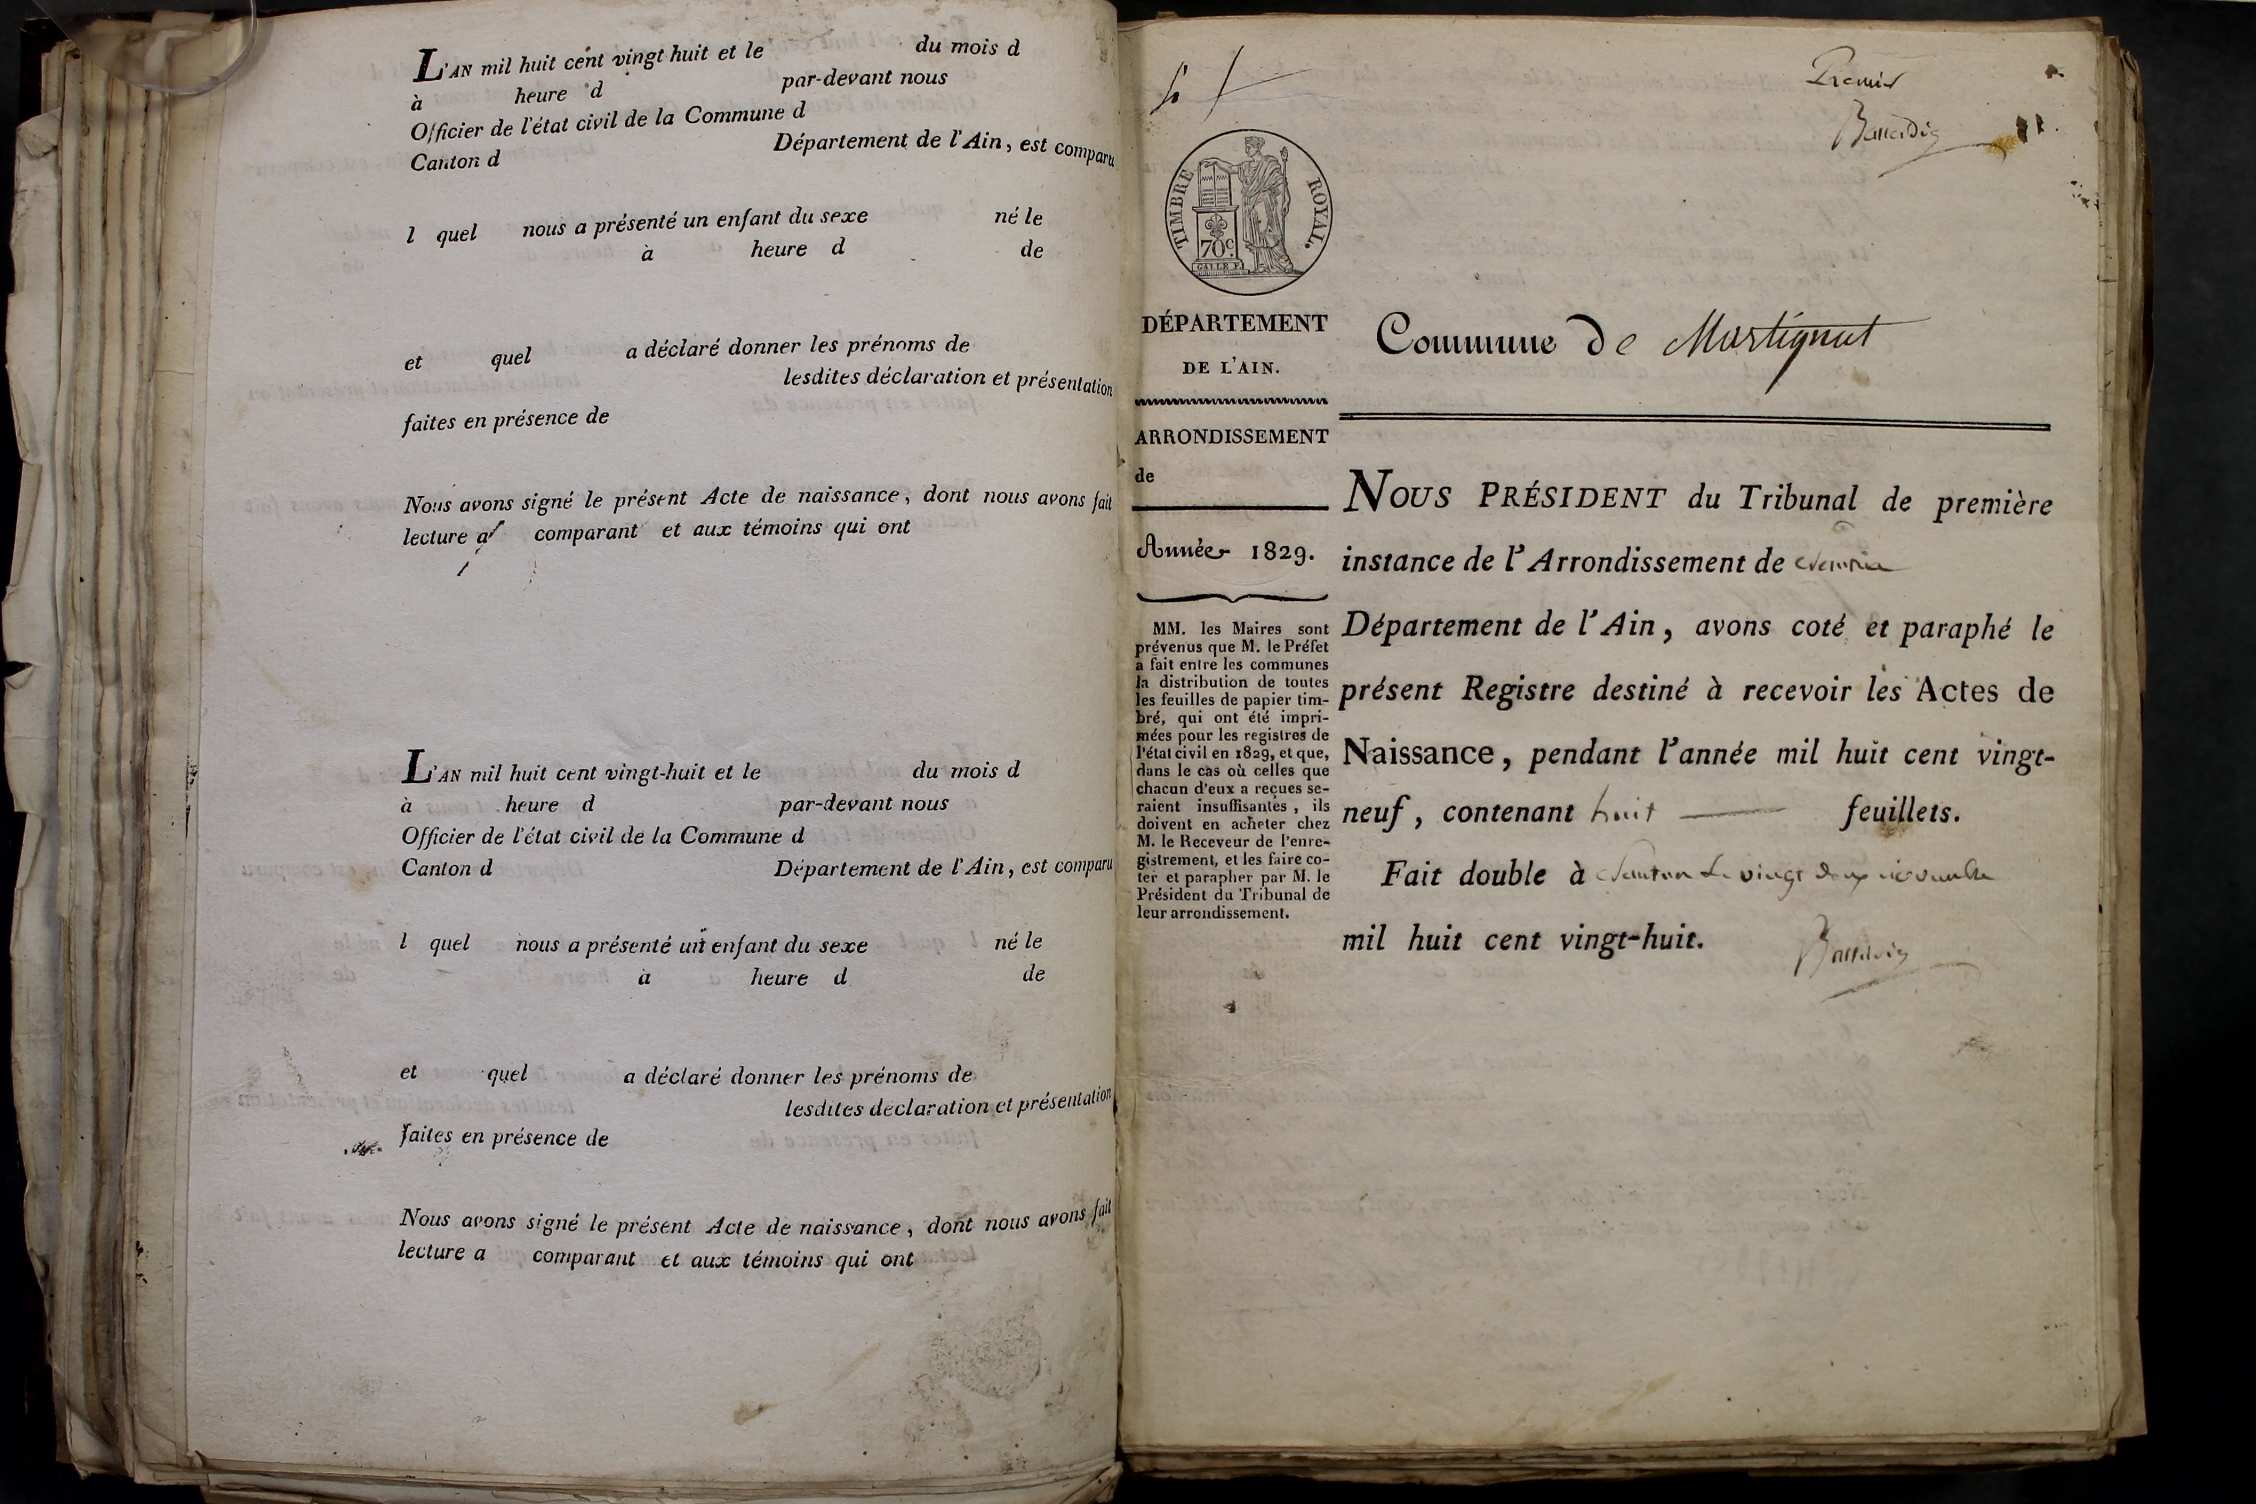 L'AN mil huit cent vingt huit et le du mois d
à heure d par-devant nous
Officier de l'état civil de la Commune d
Canton d Département de l'Ain, est comparu
l quel nous a présenté un enfant du sexe né le
à heure d de
et quel a déclaré donner les prénoms de
lesdites déclaration et présentation
faites en présence de
Nous avons signé le présent Acte de naissance, dont nous avons fait
lecture a comparant et aux témoins qui ont
L'AN mil huit cent vingt-huit et le du mois d
à heure d par-devant nous
Officier de l'état civil de la Commune d
Canton d Département de l'Ain, est comparu
l quel nous a présenté un enfant du sexe né le
à heure d de
et quel a déclaré donner les prénoms de
lesdites déclaration et présentation
faites en présence de
Nous avons signé le présent Acte de naissance, dont nous avons fait
lecture a comparant et aux témoins qui ont
Premier
TIMBRE ROYAL.
70c
DÉPARTEMENT
DE L'AIN.
ARRONDISSEMENT
de
Année 1829.
MM. les Maires sont
prévenus que M. le Préfet
a fait entre les communes
la distribution de toutes
les feuilles de papier tim-
bré, qui ont été impri-
mées pour les registres de
l'état civil en 1829, et que,
dans le cas où celles que
chacun d'eux a reçues se-
raient insuffisantes, ils
doivent en acheter chez
M. le Receveur de l'enre-
gistrement, et les faire co-
ter et parapher par M. le
Président du Tribunal de
leur arrondissement.
Commune de Martignat
NOUS PRÉSIDENT du Tribunal de première
instance de l'Arrondissement de
Département de l'Ain, avons coté et paraphé le
présent Registre destiné à recevoir les Actes de
Naissance, pendant l'année mil huit cent vingt-
neuf, contenant huit feuillets.
Fait double à Nantua le vingt deux novembre
mil huit cent vingt-huit.